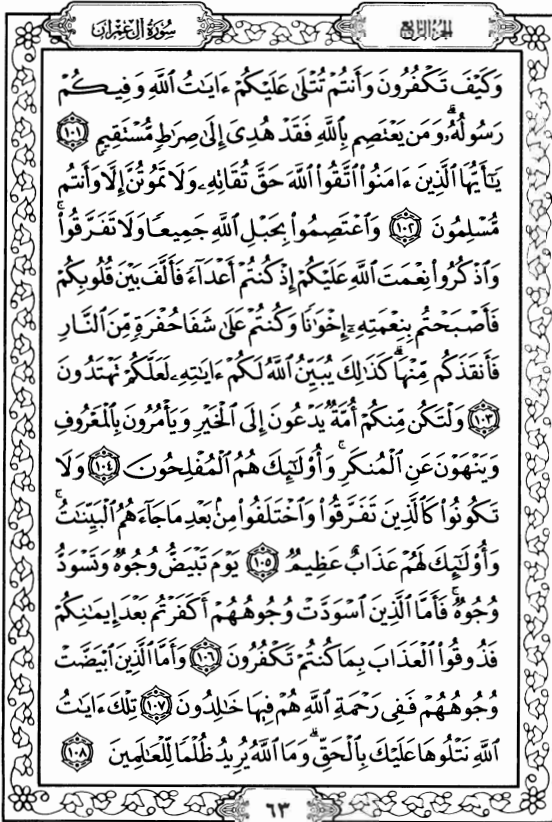 سُورَةُ آلِ عِمْرَان
الجُزْءُ الرَّابِعُ
وَكَيْفَ تَكْفُرُونَ وَأَنتُمْ تُتْلَىٰ عَلَيْكُمْ ءَايَٰتُ ٱللَّهِ وَفِيكُمْ
رَسُولُهُۥۗ وَمَن يَعْتَصِم بِٱللَّهِ فَقَدْ هُدِىَ إِلَىٰ صِرَٰطٍ مُّسْتَقِيمٍ ١٠١
يَٰٓأَيُّهَا ٱلَّذِينَ ءَامَنُوا۟ ٱتَّقُوا۟ ٱللَّهَ حَقَّ تُقَاتِهِۦ وَلَا تَمُوتُنَّ إِلَّا وَأَنتُم
مُّسْلِمُونَ ١٠٢ وَٱعْتَصِمُوا۟ بِحَبْلِ ٱللَّهِ جَمِيعًا وَلَا تَفَرَّقُوا۟ۚ
وَٱذْكُرُوا۟ نِعْمَتَ ٱللَّهِ عَلَيْكُمْ إِذْ كُنتُمْ أَعْدَآءً فَأَلَّفَ بَيْنَ قُلُوبِكُمْ
فَأَصْبَحْتُم بِنِعْمَتِهِۦٓ إِخْوَٰنًا وَكُنتُمْ عَلَىٰ شَفَا حُفْرَةٍ مِّنَ ٱلنَّارِ
فَأَنقَذَكُم مِّنْهَاۗ كَذَٰلِكَ يُبَيِّنُ ٱللَّهُ لَكُمْ ءَايَٰتِهِۦ لَعَلَّكُمْ تَهْتَدُونَ
١٠٣ وَلْتَكُن مِّنكُمْ أُمَّةٌ يَدْعُونَ إِلَى ٱلْخَيْرِ وَيَأْمُرُونَ بِٱلْمَعْرُوفِ
وَيَنْهَوْنَ عَنِ ٱلْمُنكَرِۚ وَأُو۟لَٰٓئِكَ هُمُ ٱلْمُفْلِحُونَ ١٠٤ وَلَا
تَكُونُوا۟ كَٱلَّذِينَ تَفَرَّقُوا۟ وَٱخْتَلَفُوا۟ مِنۢ بَعْدِ مَا جَآءَهُمُ ٱلْبَيِّنَٰتُۚ
وَأُو۟لَٰٓئِكَ لَهُمْ عَذَابٌ عَظِيمٌ ١٠٥ يَوْمَ تَبْيَضُّ وُجُوهٌ وَتَسْوَدُّ
وُجُوهٌۚ فَأَمَّا ٱلَّذِينَ ٱسْوَدَّتْ وُجُوهُهُمْ أَكَفَرْتُم بَعْدَ إِيمَٰنِكُمْ
فَذُوقُوا۟ ٱلْعَذَابَ بِمَا كُنتُمْ تَكْفُرُونَ ١٠٦ وَأَمَّا ٱلَّذِينَ ٱبْيَضَّتْ
وُجُوهُهُمْ فَفِى رَحْمَةِ ٱللَّهِ هُمْ فِيهَا خَٰلِدُونَ ١٠٧ تِلْكَ ءَايَٰتُ
ٱللَّهِ نَتْلُوهَا عَلَيْكَ بِٱلْحَقِّۗ وَمَا ٱللَّهُ يُرِيدُ ظُلْمًا لِّلْعَٰلَمِينَ ١٠٨
٦٣